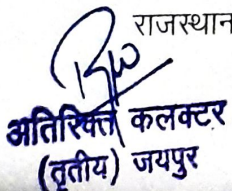 राजस्थान
अतिरिक्त कलक्टर
(तृतीय) जयपुर